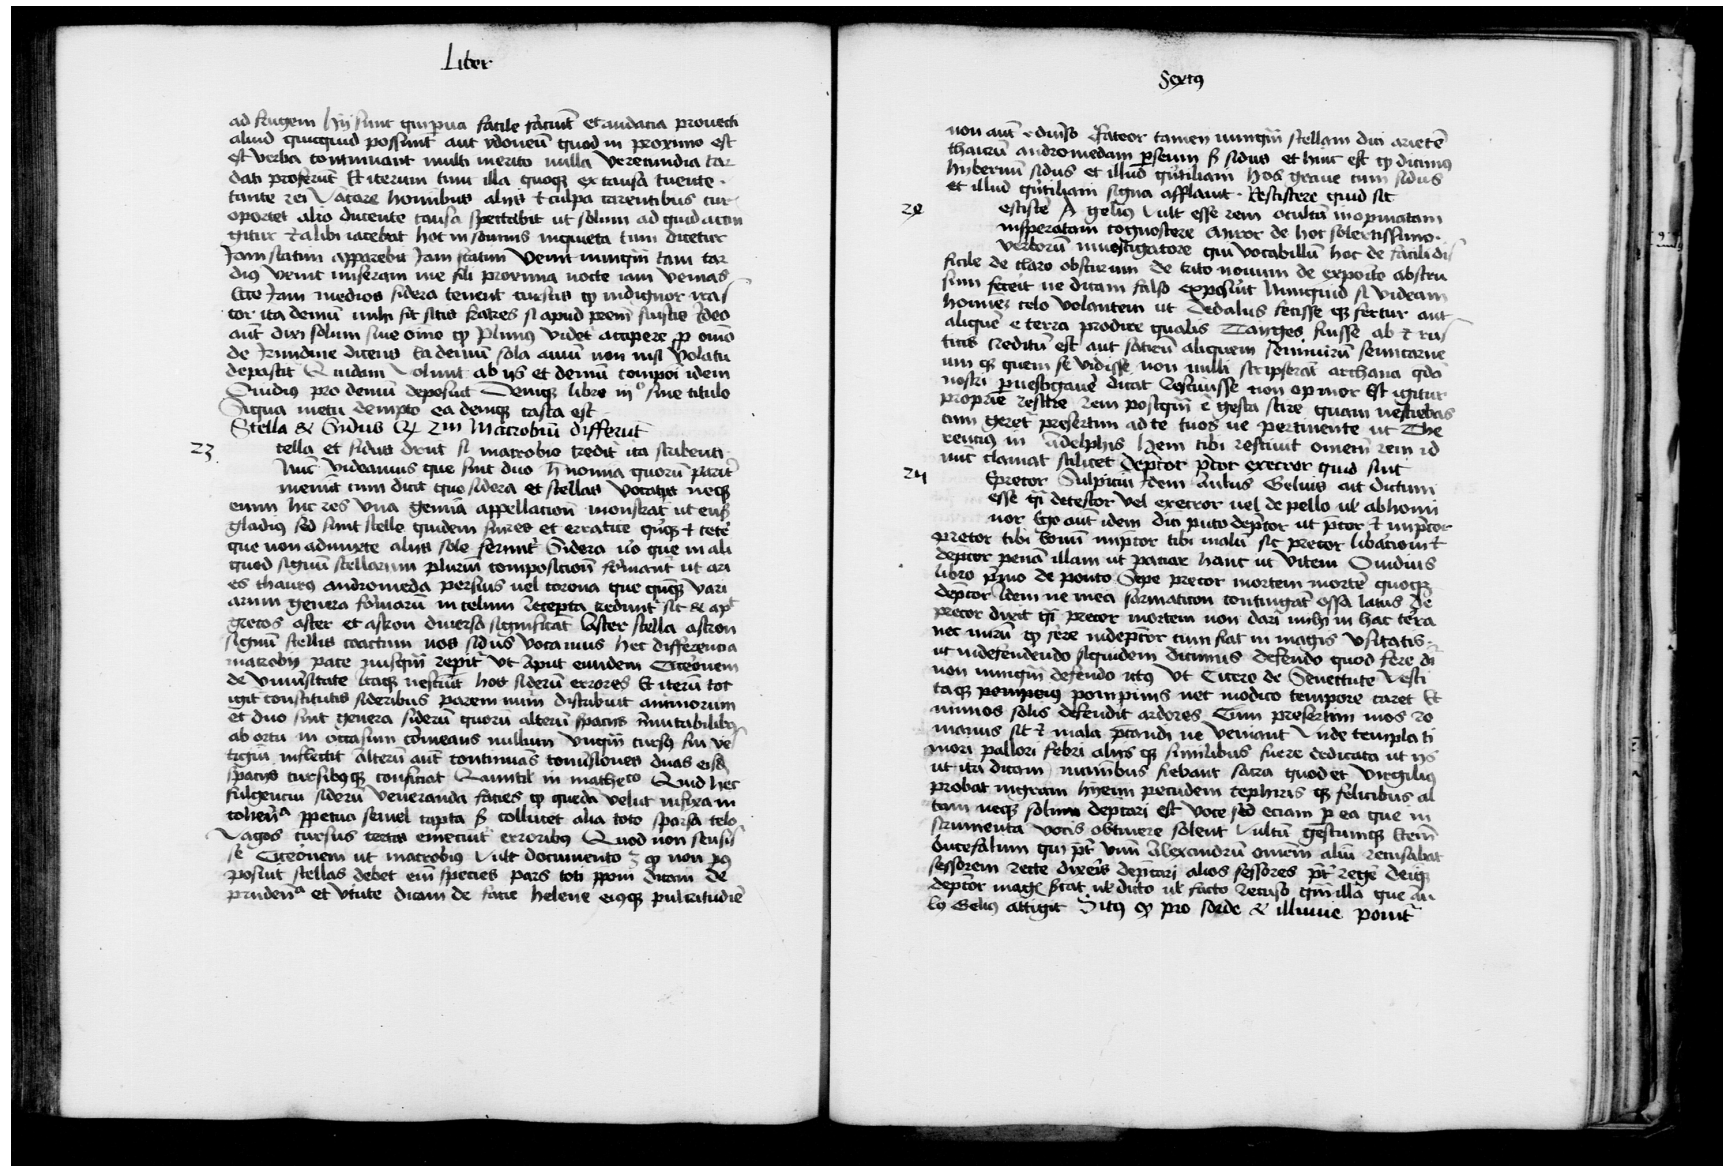 Liber
ad frugem hij sunt qui prua facile faciūt et audacia prouecti
aliud quicquid possunt aut ydoneū quod in proximo est
est verba continuant multi merito nulla verecundia tar
dati proferūt Et iterum tum illa quoqꝫ ex causa
tante rei vacare hominibus alijs et culpa carentibus cur
oportet alio ducente causa spectabit ut solum ad quid
gitur alibi iacebat hoc in inquieta cum dicetur
Jam statim apparebit Jam statim venit nunqm̄ tam tar
dius venit miseram me fili proxima nocte iam venias
Ecce Jam medios sidera tenent cursus indignor
tor ita demū mihi sit fratres si apud Ideo
aūt dixi solum siue oīno Plinius videt̄ accipere ꝑ oīno
de hirundine dicens Ea demū sola auiū non nisi volatu
depascit Quidam volunt ab ijs et demū componi idem
Ouidius pro demū deposuit Deniqꝫ libro iijº sine titulo
Siqua metu dempto ea deniqꝫ casta est
Stella & Sidus macrobiū differūt
23 tella et sidus si macrobio credit ita scribenti
Nūc videamus que sint duo noīna quorū parit̄
meminit cum dicit que sidera et stellas vocatis neqꝫ
enim hic res vna gemina appellation̄ monstrat̄ ut ensis
gladius sed sunt stelle quidem singulares et erratice quīqꝫ et cete
que non admixte alijs sole ferunt̄ Sidera vo que in ali
quod signū stellarum pluriū composition̄ formant̄ ut ari
es thaurus andromeda perseus uel corona que quīqꝫ vari
arum genera formarū in celum recepta credunt̄ sic & apt
grecos aster et astron diuersa significat Aster stella astron
signū stellis coactum nos sidus vocamus hec differencia
macrobij pace nusqm̄ repit̄ ut aput eundem Ciceronem
de vniuersitate Itaqꝫ nesciūt hos siderū errores Et iterū tot
igit̄ constitutis sideribus parem num̄ distribuit animorum
et duo sunt genera siderū quorū alterū spacijs īmutabilibꝫ
ab ortu in occasum com̄eans nullum vnqm̄ cursꝫ sui ve
tigiū inflectit Alterū aūt continuas conuersiones duas eisdē
spacijs cursibꝫqꝫ conficiat Quintil in mathe Quid hec
fulgenciū siderū veneranda facies quedā velut infixa in
coherēᵃ ꝑpetua semel capta collucet alia toto sparsa celo
vagos cursus certis emeciūt erroribꝫ Quod non
se Ciceronem ut macrobius vult documento non
posuit stellas debet eim̄ species pars toti pponi dicam de
prudenᵃ et v̄tute dicam de facie helene eiꝫqꝫ pulcritudīe
Sextꝫ
non aūt ediuīso Fateor tamen nunqm̄ stellam dici arietē
thaurū andromedam perseum sidus et hinc est dicimꝫ
hybernū sidus et illud Quītiliani hos graue cum sidus
et illud Quītiliani signa afflant Resciscere quid sit
29 esciscē A gelius vult esse rem ocultā inopinatam
insperatam cognoscere miror de hoc solertissimo
verborū inuestigatore qui vocabillū hoc de facili di
ficile de claro obscurum de certo nouum de exposito abstru
sum fecit ne dicam falso exposuit Nunquid si videam
hominē celo volantem ut Dedalus fecisse qꝫ fertur aut
aliquē e terra prodire qualis Tanges fuisse ab
ticis creditū est aut satirū aliquem semiuirū semicarne
um qꝫ quem se vidisse non nulli scripserāt archana
nostri ꝑuestigauē dicat resciuisse non opinor Est igitur
proprie rescīre rem postqm̄ ē gesta scire quam nesciebas
cum geret̄ presertim ad te tuos ue pertinente ut The
rencius in Adelphis hem tibi resciuit omem̄ rem id
nūc clamat scilicet Dep̄cor p̄cor execror quid sint
24 Eprecor Sulpiciū Idem Aulus Gelius ait dictum
esse detestor vel execror uel de pello ul abhomi
nor Ego aūt idem dici puto dep̄cor ut p̄cor et imp̄cor
precor tibi bonū imp̄cor tibi malū sic precor
dep̄cor penā illam ut paciar hanc ut vitem Ouidius
libro p̄mo de ponto Sepe precor mortem mortē quoqꝫ
dep̄cor Idem ne mea sarmaticon contingat ossa latus De
precor dixit precor mortem non dari mihi in hac terra
nec mirū fere indep̄cor cum fiat in magis vsitatis
ut in defendendo siquidem dicimus defendo quod fere di
non nunqm̄ defendo ictus Ut Cicero de Senectute
taqꝫ pompeius pompinis nec modico tempore caret Et
nimios solis defendit ardores Cum presertim mos ro
manus sit et mala p̄candi ne veniant vnde templa ti
mori pallori febri alijs qꝫ similibus fuere dedicata ut ijs
ut ita dicam numinibus fiebant sacra quod et Virgilius
probat nigram hyemi pecudem zephiris qꝫ felicibus al
bam neqꝫ solum deprecari est voce sed eciam ꝑ ea que in
strumenta vocis obtinere solent vultū gestumqꝫ Etem̄
bucefalum qui p̄t vnū Alexandrū omem̄ aliū recusabat
sessorem recte dixeris dep̄cari alios sessores p̄t regē deniqꝫ
dep̄cor magꝫ ul dicto ul facto recuso qm̄ illā que au
lꝫ Gelius attigit Sitꝫ pro sorde & illuuie ponit̄